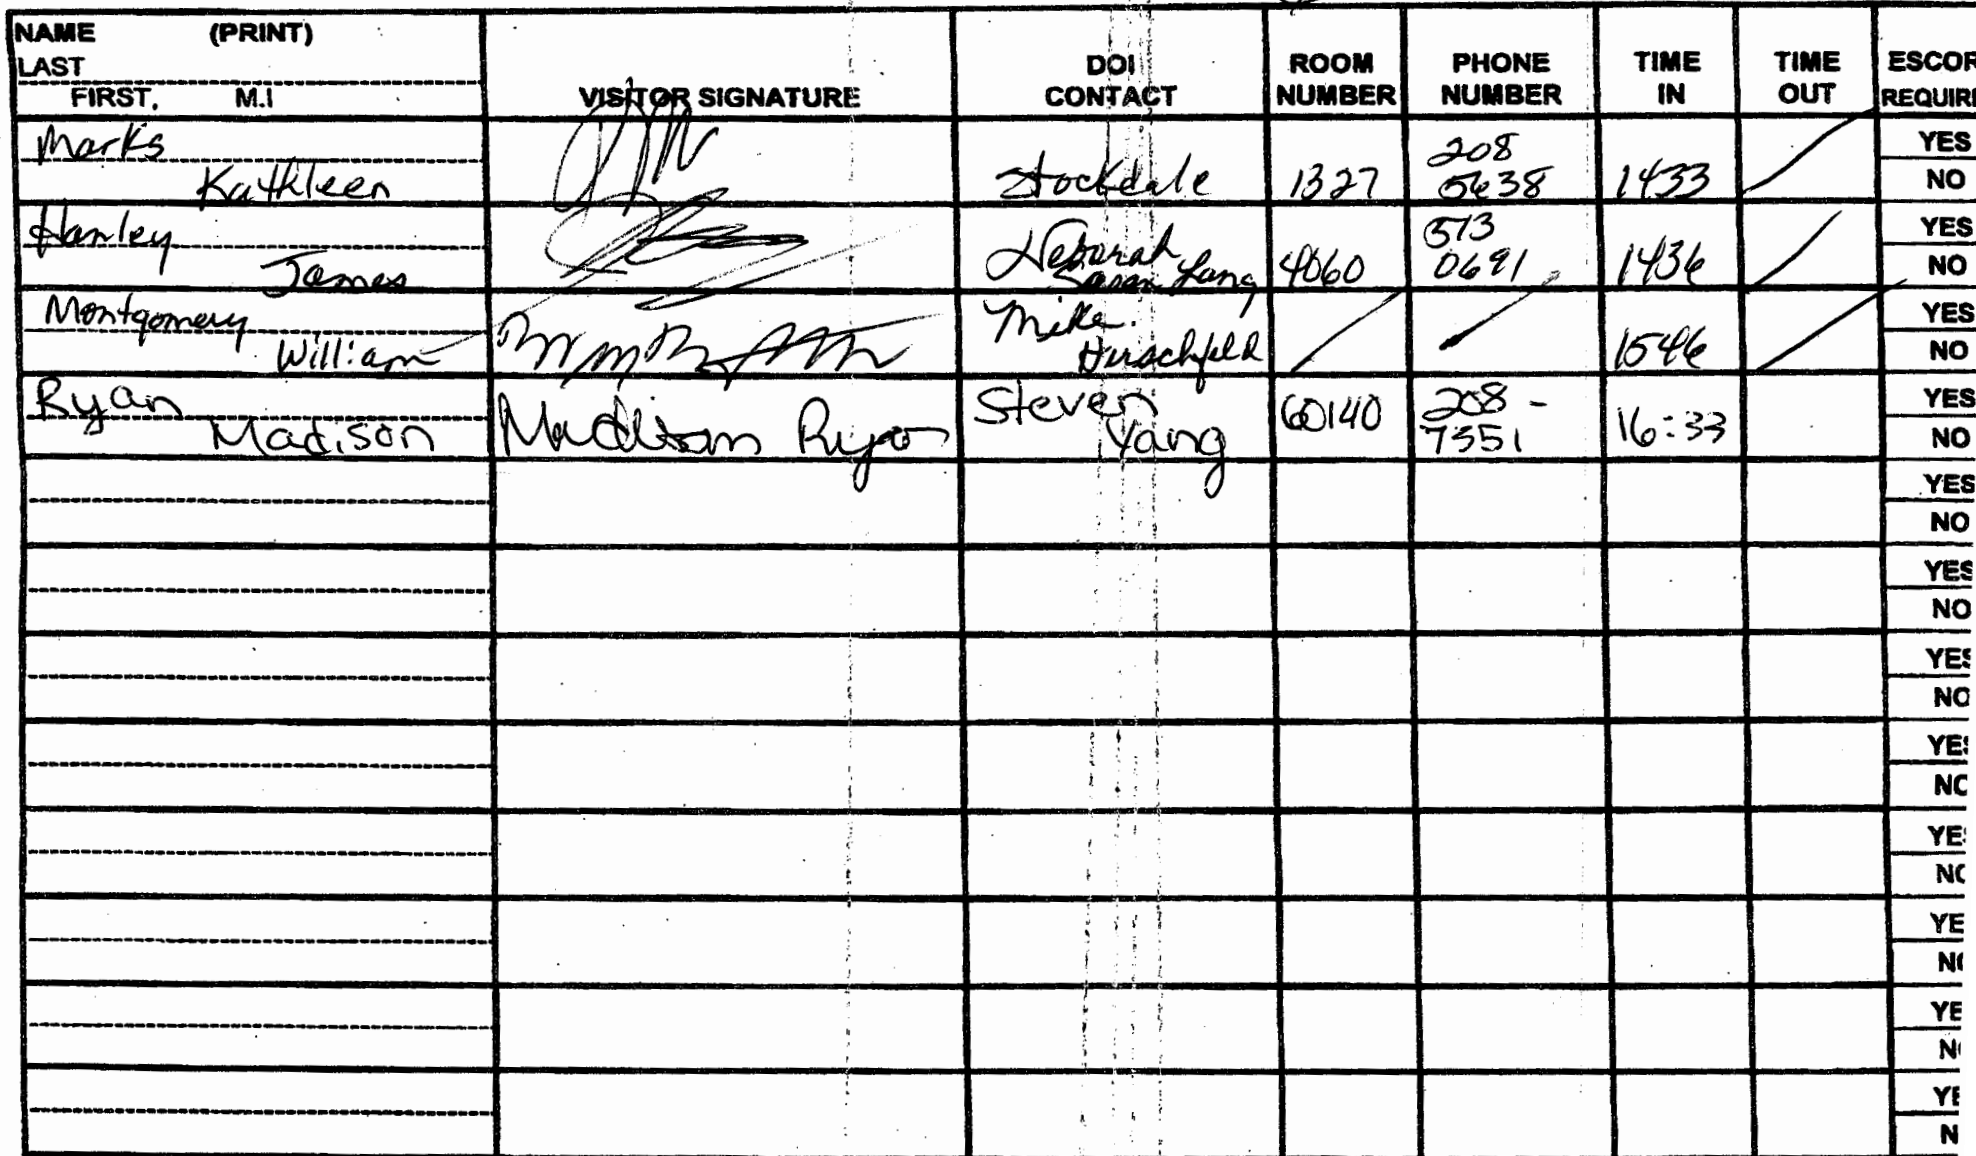 NAME (PRINT)
LAST
FIRST, M.I
VISITOR SIGNATURE
DOI
CONTACT
ROOM
NUMBER
PHONE
NUMBER
TIME
IN
TIME
OUT
ESCOR
REQUIRE
Marks
Kathleen
Stockdale
1327
208
5638
1433
YES
NO
Hanley
James
Deborah
Lang
4060
513
0691
1436
YES
NO
Montgomery
William
Mike
Hirschfeld
1546
YES
NO
Ryan
Madison
Madison Ryan
Steven
Yang
60140
208 -
7351
16:33
YES
NO
YES
NO
YES
NO
YES
NO
YES
NO
YE
NO
YE
NO
YE
N
YE
N